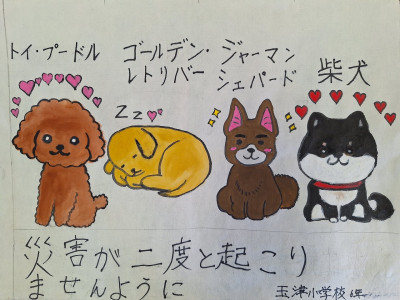 トイ・プードル
ゴールデン・
レトリバー
ジャーマン
シェパード
柴犬
zz
災害が二度と起こり
ませんように
玉津小学校 6年